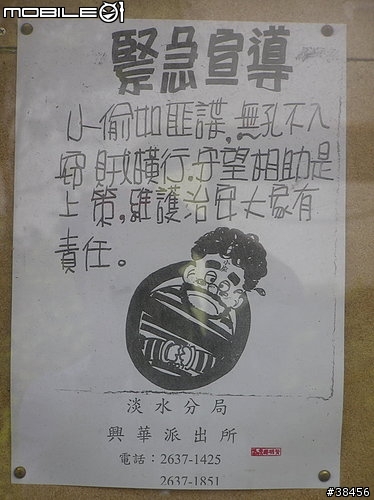 MOBILE01
緊急宣導
小偷如匪諜,無孔不入
竊賊橫行.守望相助是
上策,維護治安大家有
責任。
淡水分局
興華派出所
電話:2637-1425
2637-1851
#38456